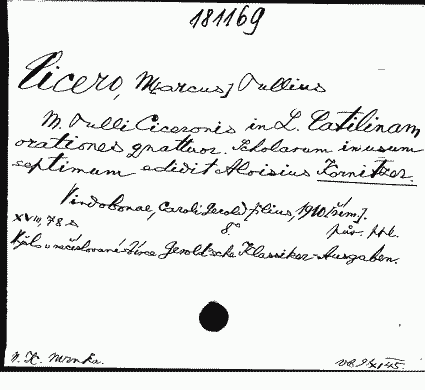 181169
Cicero, M[arcus] Tullius
M. Tulli Ciceronis in L. Catilinam
orationes qnattuor. Scholarum in usum
septimum edidit Aloisius Kornitzer.
Vindobonae, Caroli Gerold filius, 1910 [Řím].
XVIII, 78 s. 8° pův. ppl.
Vyšlo v nečíslované sbírce Gerold'sche Klassiker-Ausgaben.